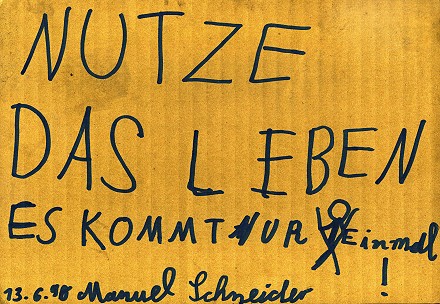 NUTZE
DAS LEBEN
ES KOMMT NUR Einmal
!
13.6.98 Manuel Schneider